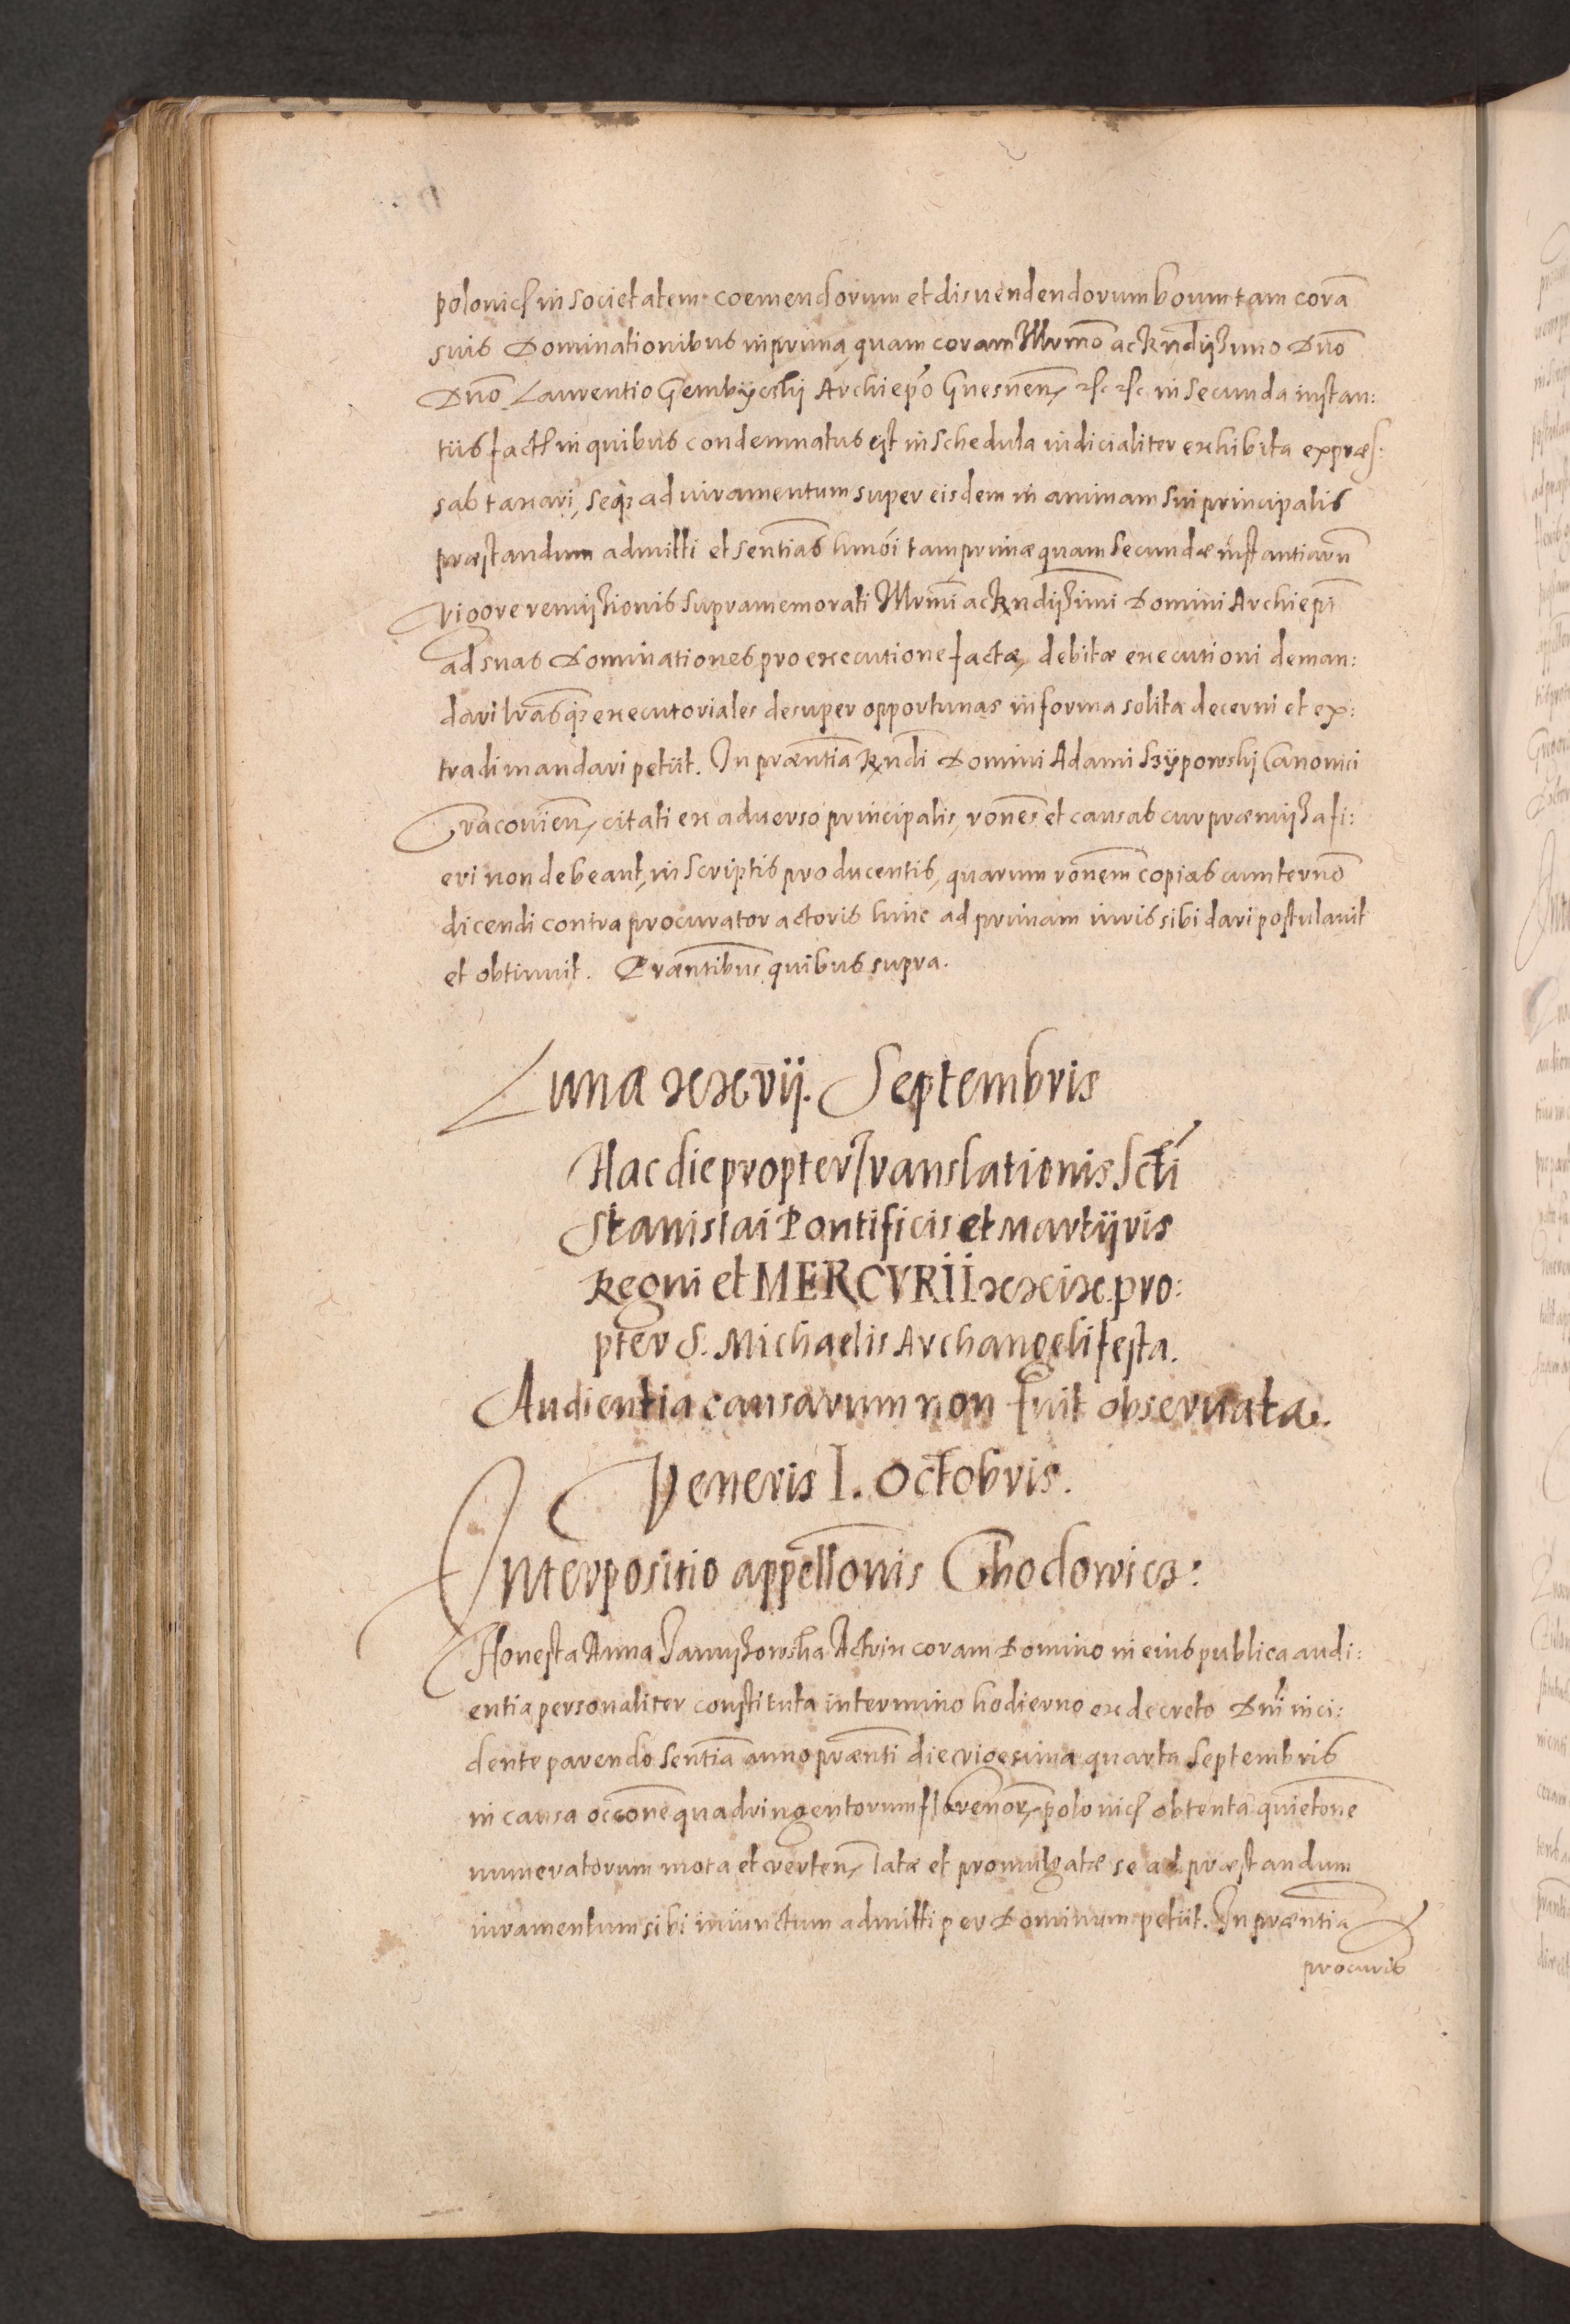 polonical in societatem coemendorum et disuendendorum boum tam corā
suis Dominationibus in prima, quam coram Illrmō ac Rndissimo Dnō
Dnō Laurentio Gembyczki Archiepō Gnesnen, etc etc in secunda instan:
tiis fact in quibus condemnatus est in schedula iudicialiter exhibita expræs:
sas taxari, seqз ad iuramentum super eisdem in animam sui principalis
præstandum admitti et sentīas hmōi tam primæ quam secundæ instantiarū
vigore remissionis supramemorati Illrmi ac Rndissimi Domini Archiepi
ad suas Dominationes pro executione factæ, debitæ executioni deman:
dari lrasqз executoriales desuper opportunas in forma solita decerni et ex:
tradi mandari petiit. In præntia Rndi Domini Adami Szÿpowski Canonici
Cracouien, citati ex aduerso principalis, rōnes et causas cur præmissa fi:
eri non debeant, in scriptis producentis, quarum rōnem copias cum ternō
dicendi contra procurator actoris hinc ad primam iuris sibi dari postulauit
et obtinuit. Præntibus quibus supra.
Lunæ xxvij. Septembris
Hac die propter Translationis Scti
Stanislai Pontificis et Martÿris
Regni et MERCVRII xxix. pro:
pter S. Michaelis Archangeli festa.
Audientia causarum non fuit obseruata.
Veneris I. Octobris.
Interpositio appellōnis Chodowicz:
Honesta Anna Janiszowska Actrix coram Domino in eius publica audi:
entia personaliter constituta in termino hodierno ex decreto Dni inci:
dente parendo sentīæ anno prænti die vigesima quarta Septembris
in causa occōne quadringentorum florenor, polonical obtenta quietōne
numeratorum mota et verten, latæ et promulgatæ se ad præstandum
iuramentum sibi iniunctum admitti per Dominum petiit. In præntia
procuris